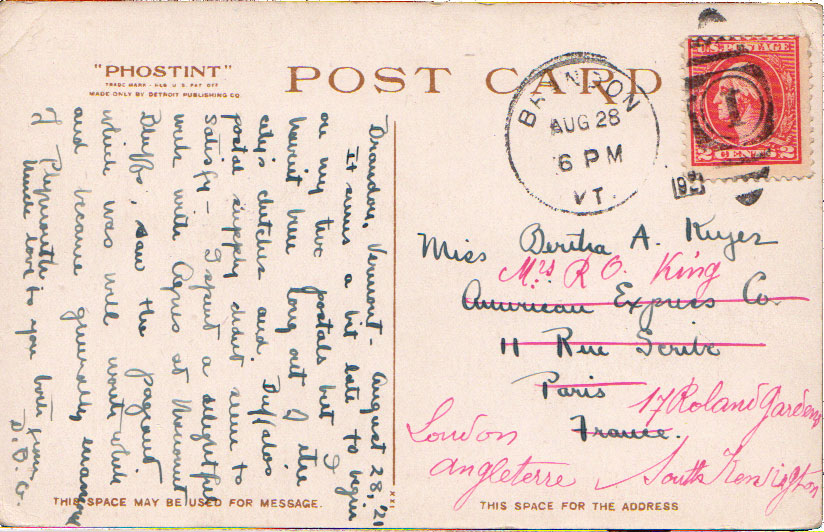 "PHOSTINT"
TRADE MARK - REG U.S. PAT OFF
MADE ONLY BY DETROIT PUBLISHING CO.
POST CARD
BRANDON
AUG 28
6 PM
VT.
192
U.S. POSTAGE
2 CENTS 2
1
Brandon, Vermont - August 28, '21
It seems a bit late to begin
on my two postals but I
haven't been long out of the
city's clutches and Buffalo's
postal supply didn't seem to
satisfy - I spent a delightful
week with Agnes at Manomet
Bluffs, saw the pageant
which was well worth while
and became generally enamored
of Plymouth.
Much love to you both from
D. O. G.
Miss Bertha A. Kuyer
Mrs R O. King
American Express Co.
11 Rue Scribe
Paris
France.
17 Roland Gardens
South Kensighton
London
Angleterre
XXI
THIS SPACE MAY BE USED FOR MESSAGE.
THIS SPACE FOR THE ADDRESS